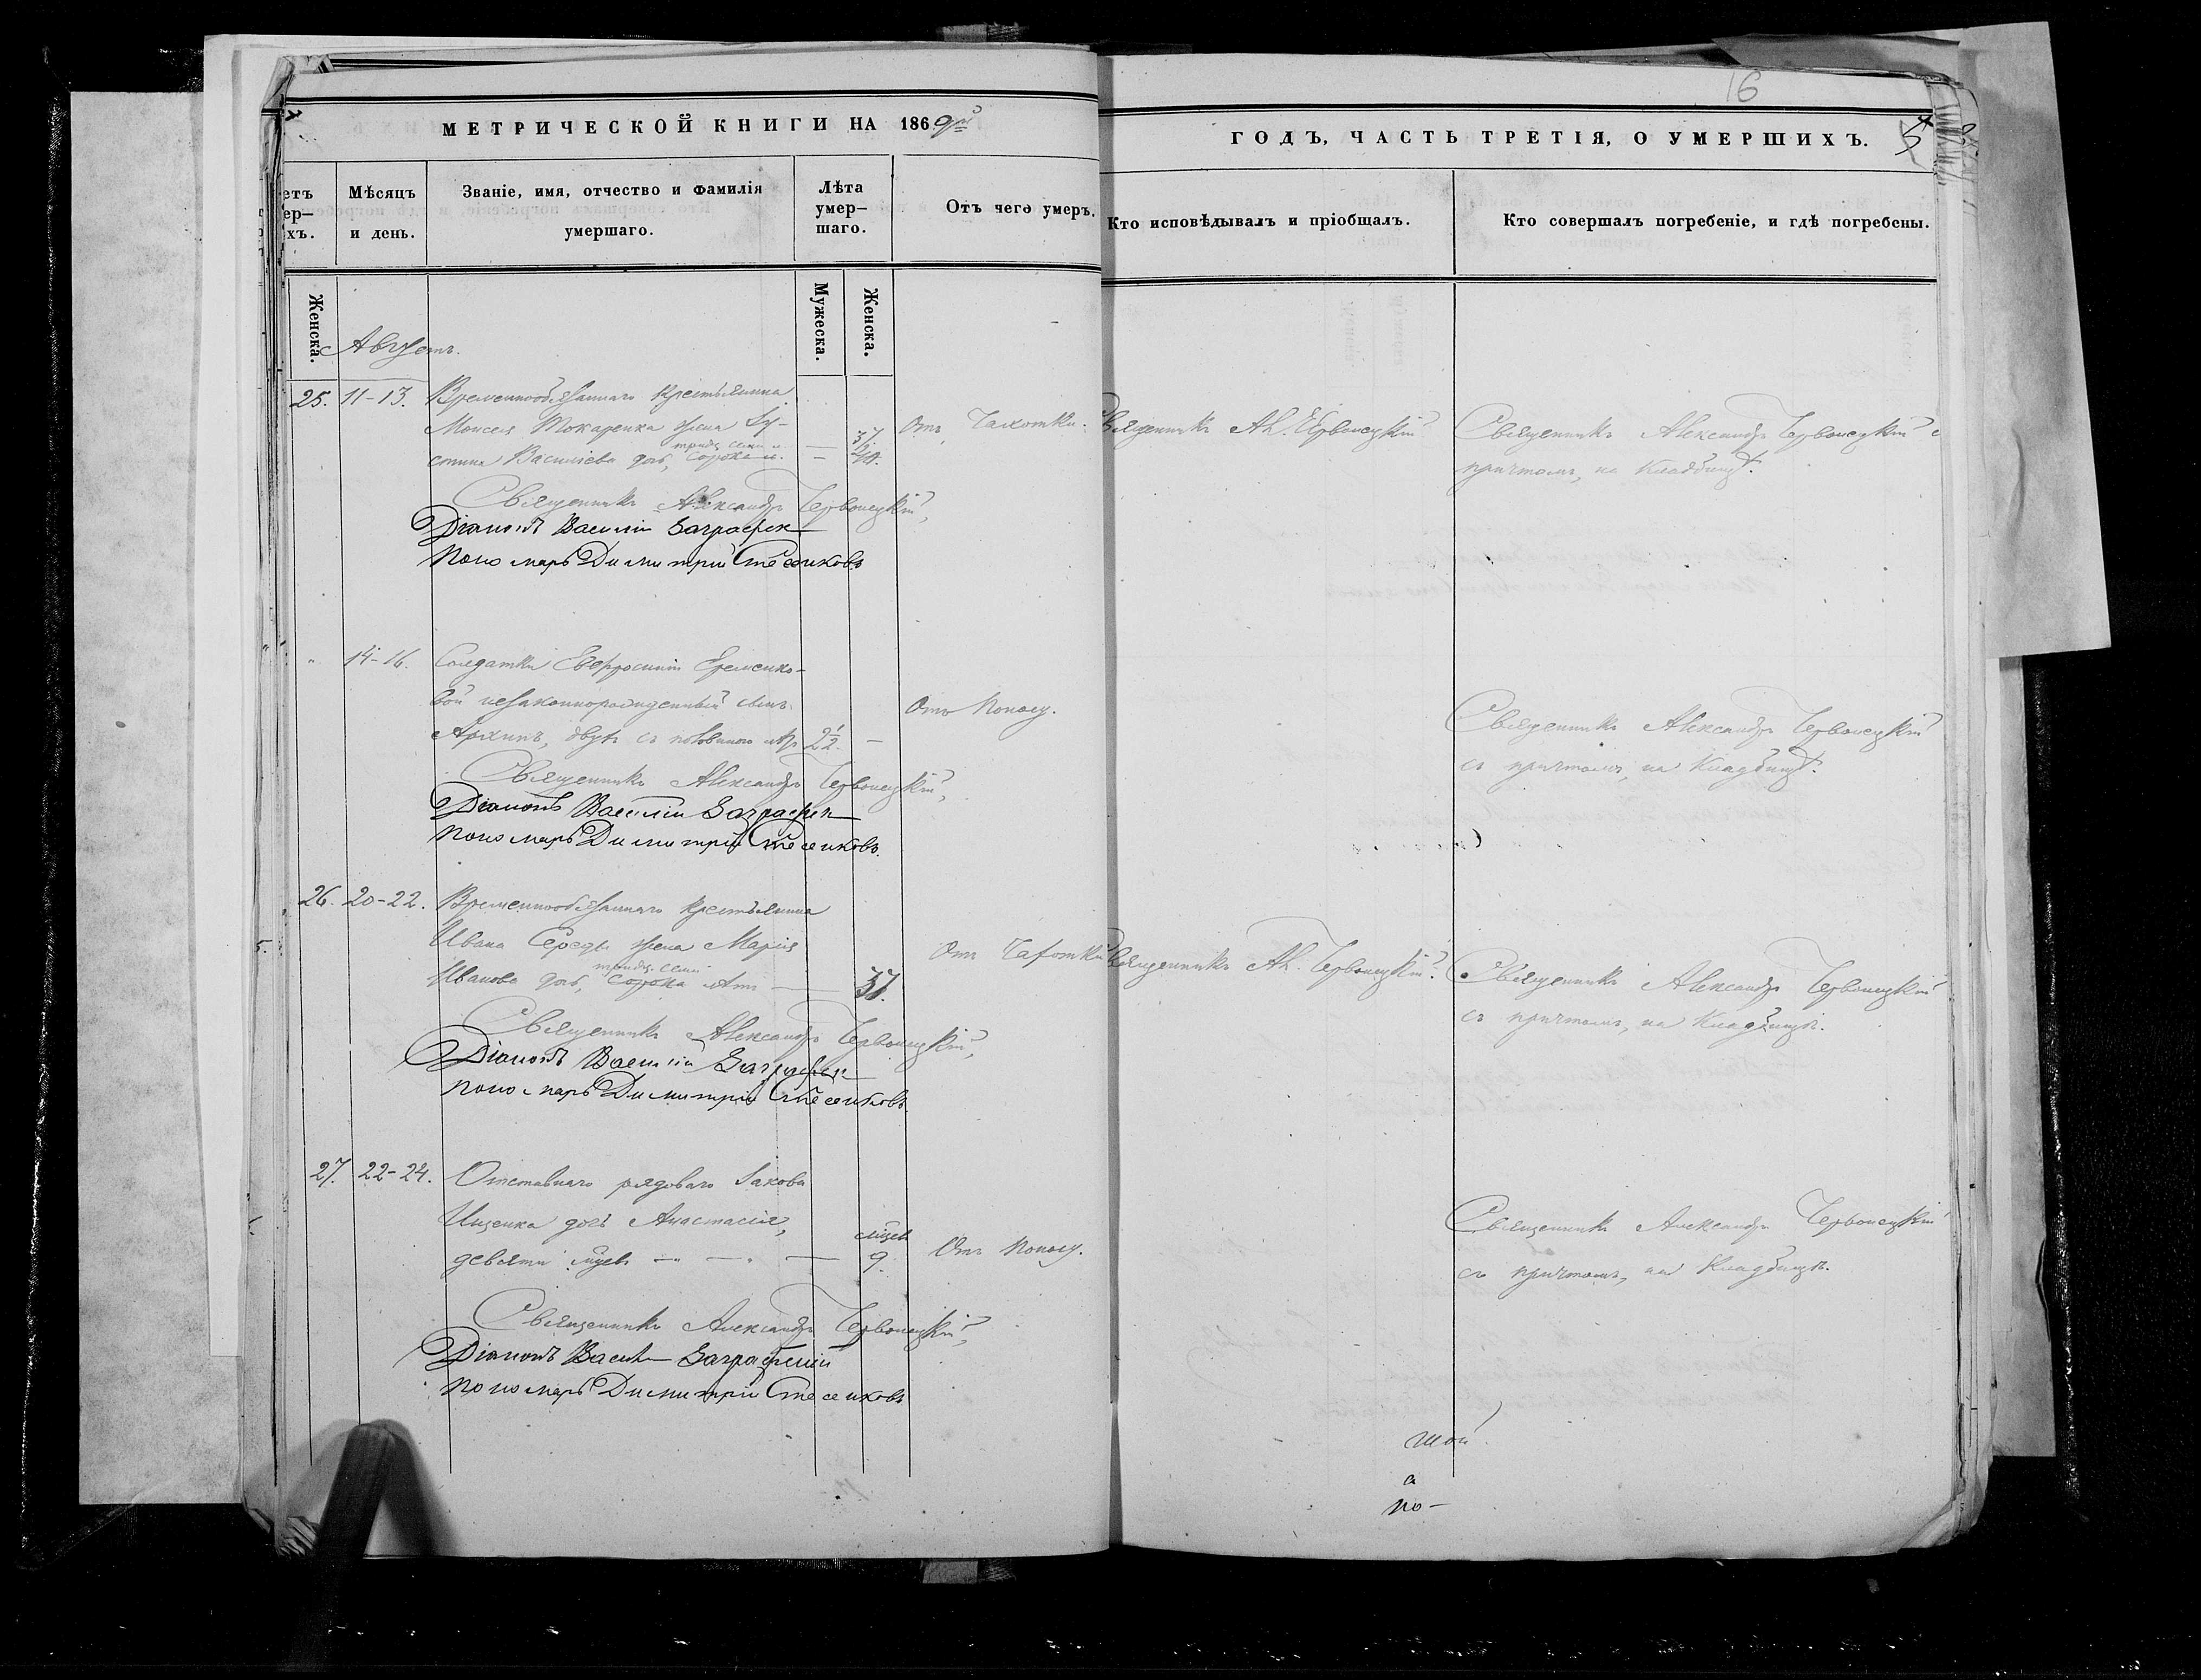 16
МЕТРИЧЕСКОЙ КНИГИ НА 1869й
ГОДЪ, ЧАСТЬ ТРЕТІЯ, О УМЕРШИХЪ.
етъ
ер—
хъ.
Мѣсяцъ
и день.
Званіе, имя, отчество и фамилія
умершаго.
Лѣта
умер—
шаго.
Отъ чего умеръ.
Кто исповѣдывалъ и пріобщалъ.
Кто совершалъ погребеніе, и гдѣ погребены.
Женска.
Мужеска.
Женска.
Августъ.
25. 11-13. Временнообязаннаго крестьянина
Моисея Токаренка жена Іу-
стина Василіева дочь, тридц. семи 37.
Отъ Чахотки.
Священникъ Ал. Червонецкій
Священникъ Александръ Червонецкій с
причтомъ, на Кладбищѣ.
Священникъ Александръ Червонецкій,
Діаконъ Василій
Пономарь Димитрій
14-16. Солдатки Евфросиніи Еременко-
вой незаконнорожденный сынъ
Архипъ, двухъ съ половиною лѣтъ 2½. —
Отъ Поносу.
Священникъ Александръ Червонецкій
съ причтомъ, на Кладбищѣ.
Священникъ Александръ Червонецкій,
Діаконъ Василій
Пономарь Димитрій
26. 20-22. Временнообязаннаго крестьянина
Ивана Середы жена Марія
Иванова дочь, тридц. семи сорока лѣтъ — 37.
Отъ Чахотки
Священникъ Ал. Червонецкій.
Священникъ Александръ Червонецкій
съ причтомъ, на Кладбищѣ.
Священникъ Александръ Червонецкій,
Діаконъ Василій
Пономарь Димитрій
27. 22-24. Отставнаго рядоваго Іакова
Ищенка дочь Анастасія,
девяти мѣсц. — — — 9.
Отъ Поносу.
Священникъ Александръ Червонецкій
съ причтомъ, на Кладбищѣ.
Священникъ Александръ Червонецкій,
Діаконъ
Пономарь Димитрій
шой
а
но-